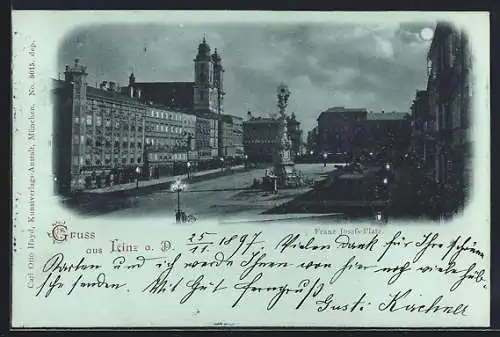 Carl Otto Hayd, Kunstverlags-Anstalt, München. No. 8615. dep.
Franz Josefs-Platz.
Gruss
aus Linz a. D. 25/11. 1897. Vielen Dank für Ihre schöne
Karten und ich werde Ihnen von hier noch viele hübsche
senden. Mit herz. Gruss Gusti Kirchner